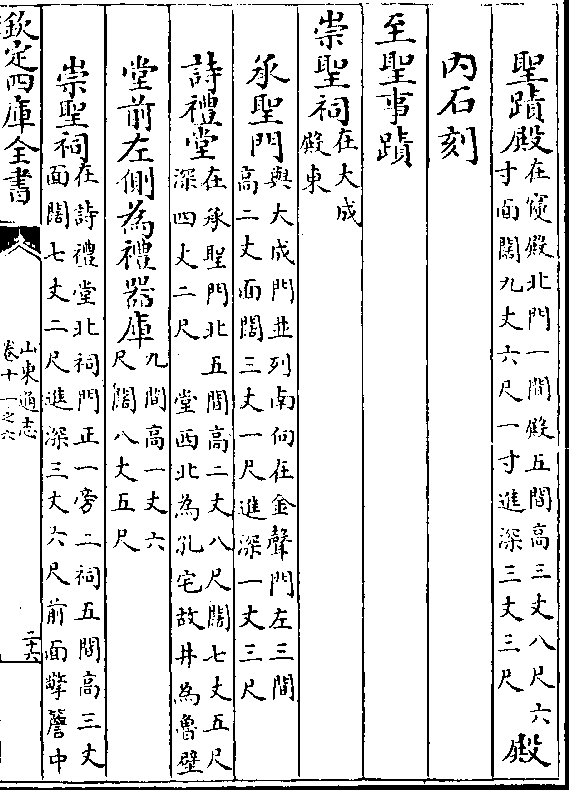 聖蹟殿在寢殿北門一間殿五間高三丈八尺六
寸面闊九丈六尺一寸進深三丈三尺殿
內石刻
至聖事蹟
崇聖祠在大成
殿東
承聖門與大成門並列南向在金聲門左三間
高二丈面闊三丈一尺進深一丈三尺
詩禮堂在承聖門北五間高二丈八尺闊七丈五尺
深四丈二尺 堂西北為孔宅故井為魯壁
堂前左側為禮器庫九間高一丈六
尺闊八丈五尺
崇聖祠在詩禮堂北祠門正一旁二祠五間高三丈
面闊七丈二尺進深三丈六尺前面擎簷中
欽定四庫全書
山東通志
卷十一之六
二十六